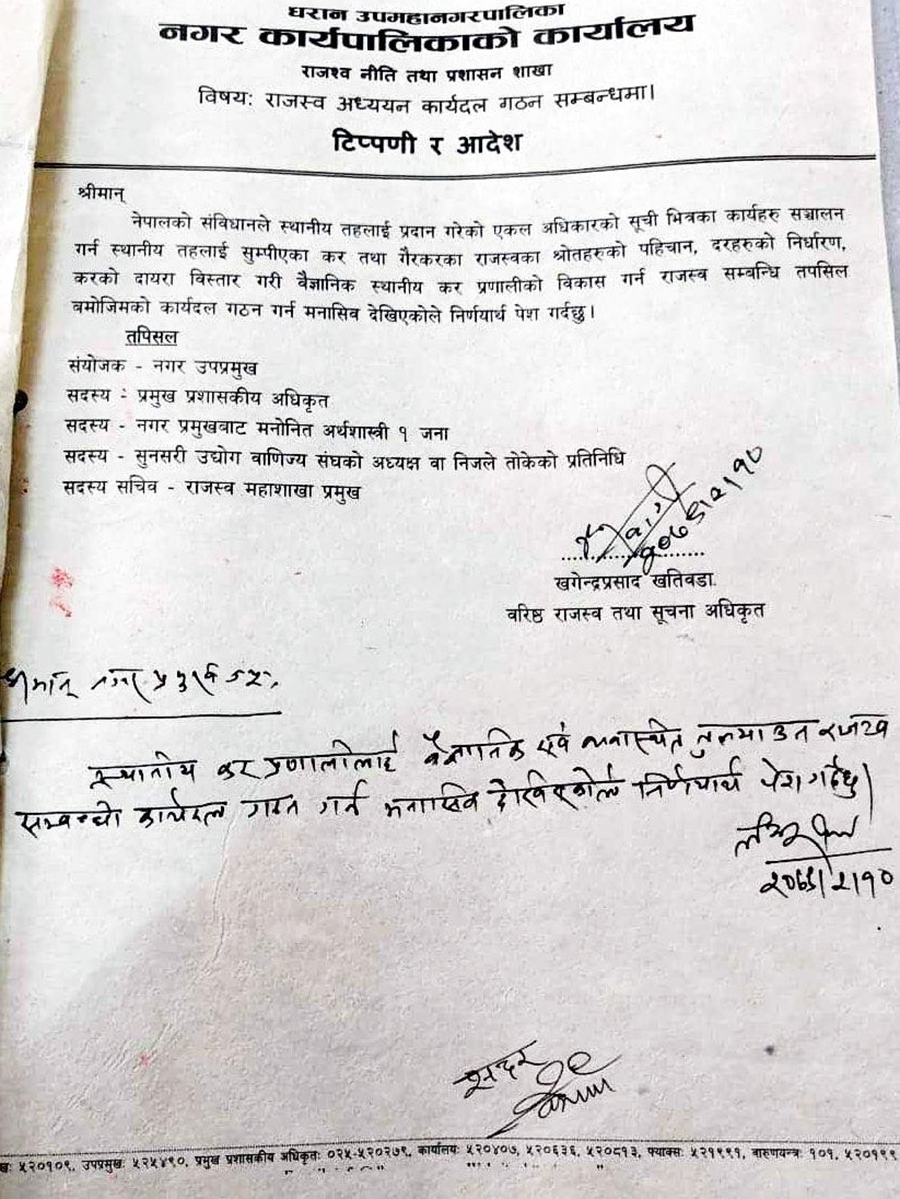 धरान उपमहानगरपालिका
नगर कार्यपालिकाको कार्यालय
राजश्व नीति तथा प्रशासन शाखा
विषय: राजस्व अध्ययन कार्यदल गठन सम्बन्धमा।
टिप्पणी र आदेश
श्रीमान्
नेपालको संविधानले स्थानीय तहलाई प्रदान गरेको एकल अधिकारको सूची भित्रका कार्यहरु सञ्चालन
गर्न स्थानीय तहलाई सुम्पीएका कर तथा गैरकरका राजस्वका श्रोतहरुको पहिचान, दरहरुको निर्धारण,
करको दायरा विस्तार गरी वैज्ञानिक स्थानीय कर प्रणालीको विकास गर्न राजस्व सम्बन्धि तपसिल
बमोजिमको कार्यदल गठन गर्न मनासिव देखिएकोले निर्णयार्थ पेश गर्दछु।
तपिसल
संयोजक - नगर उपप्रमुख
सदस्य - प्रमुख प्रशासकीय अधिकृत
सदस्य - नगर प्रमुखबाट मनोनित अर्थशास्त्री १ जना
सदस्य - सुनसरी उद्योग वाणिज्य संघको अध्यक्ष वा निजले तोकेको प्रतिनिधि
सदस्य सचिव - राजस्व महाशाखा प्रमुख
खगेन्द्रप्रसाद खतिवडा
वरिष्ठ राजस्व तथा सूचना अधिकृत
श्रीमान् नगर प्रमुख
स्थानीय कर प्रणालीलाई वैज्ञानिक एवं राजस्व
सम्बन्धी कार्यदल गठन गर्न मनासिव देखिएकोले निर्णयार्थ पेश गर्दछु।
सदर
खः ५२०१०९, उपप्रमुखः ५२५४९०, प्रमुख प्रशासकीय अधिकृतः ०२५-५२०२७९, कार्यालयः ५२०४०७, ५२०६३६, ५२०८१३, फ्याक्सः ५२१९९१, वारुणयन्त्रः १०१, ५२०१९९